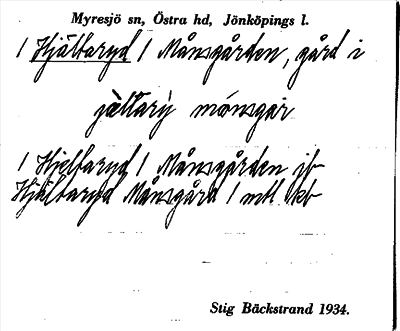 Myresjö sn, Östra hd, Jönköpings l.
/ Hjältaryd / Månsgården, gård i
jàltarỳ mónsgạr
/ Hjeltaryd / Månsgården jb
Hjältaryd Månsgård / mtl kb
Stig Bäckstrand 1934.